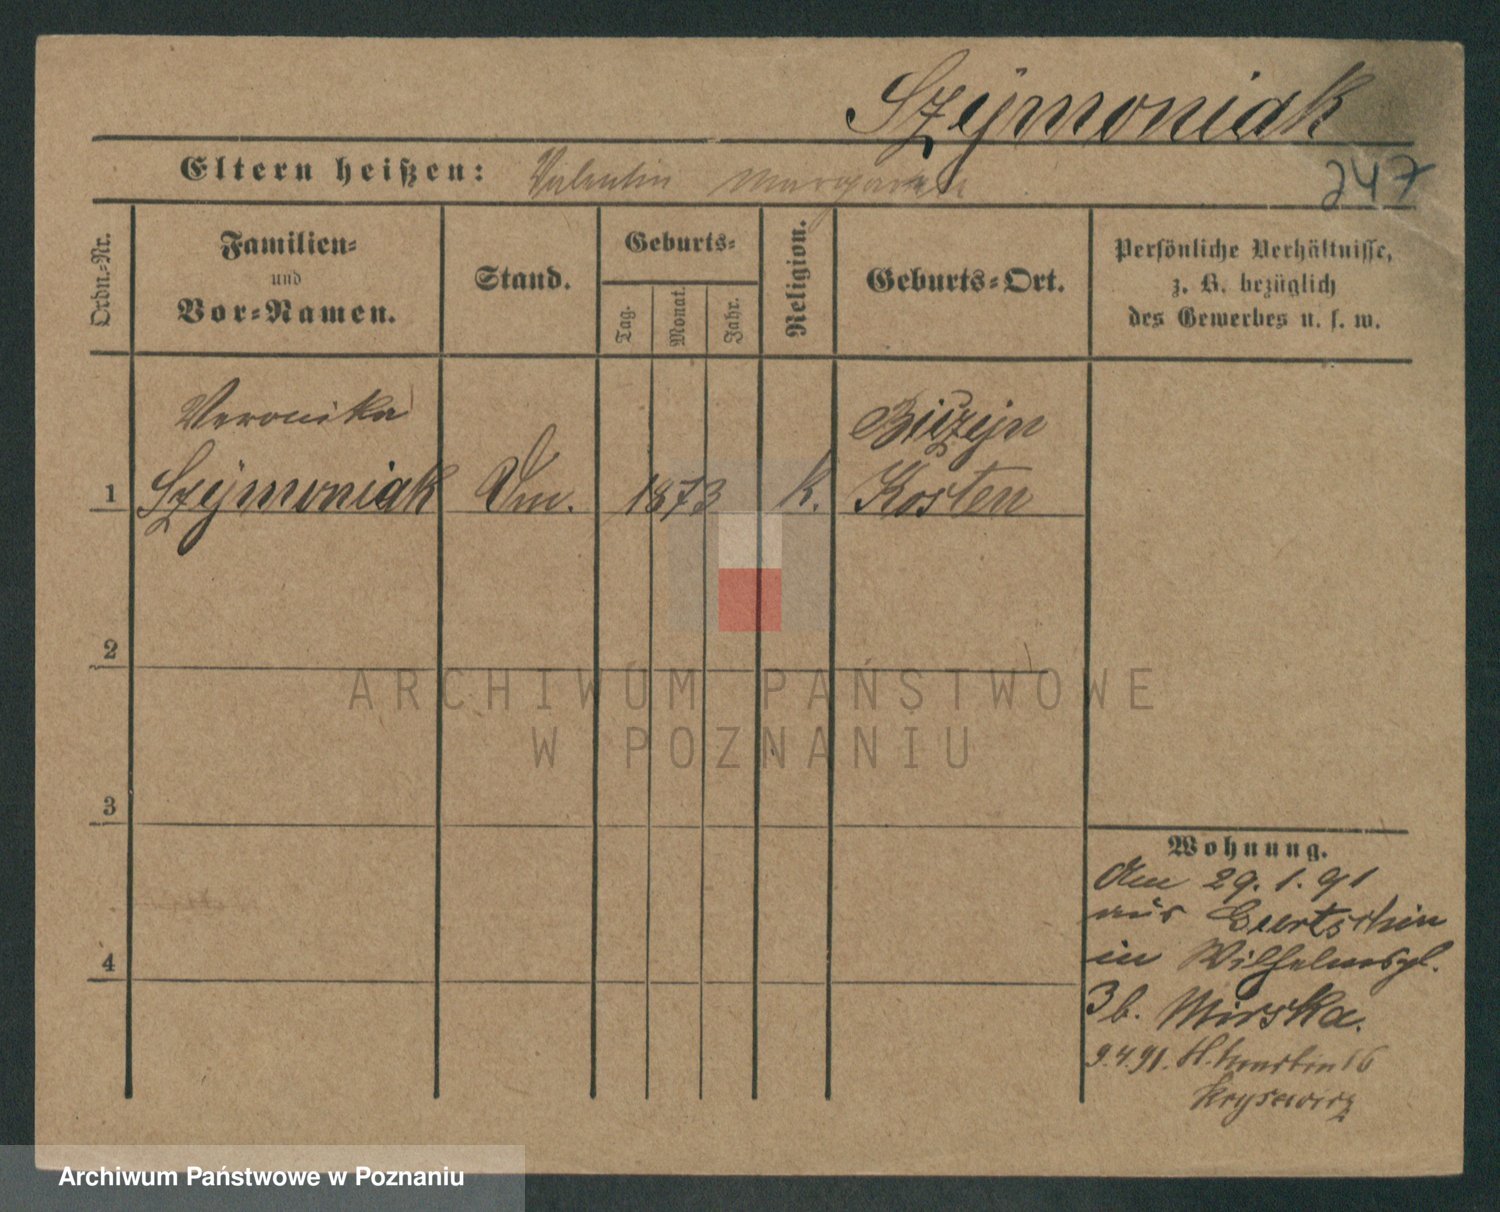 Szÿmoniak
247
Eltern heißen: Valentin Margareta
Ordn.-Nr.
Familien-
und
Vor-Namen.
Stand.
Geburts-
Tag.
Monat.
Jahr.
Religion.
Geburts-Ort.
Persönliche Verhältnisse,
z. B. bezüglich
des Gewerbes u. s. w.
Veronika
1 Szÿmoniak 1873 K. Kosten
2
3
4
Wohnung.
Am 29.1.91
aus
in Wilhelmspl.
3 b. Mirska.
9.4.91. 16
ARCHIWUM PAŃSTWOWE
W POZNANIU
Archiwum Państwowe w Poznaniu